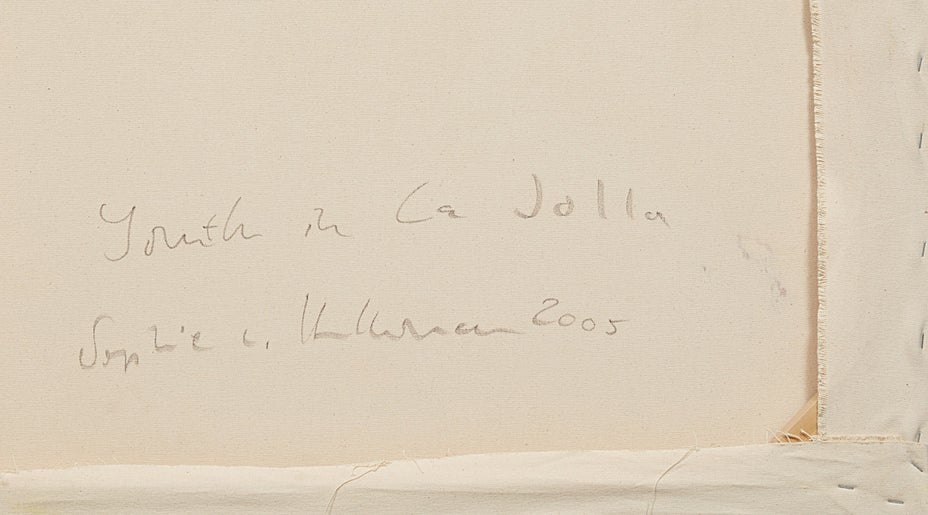 Youth in La Jolla
Sophie v. Hellermann 2005